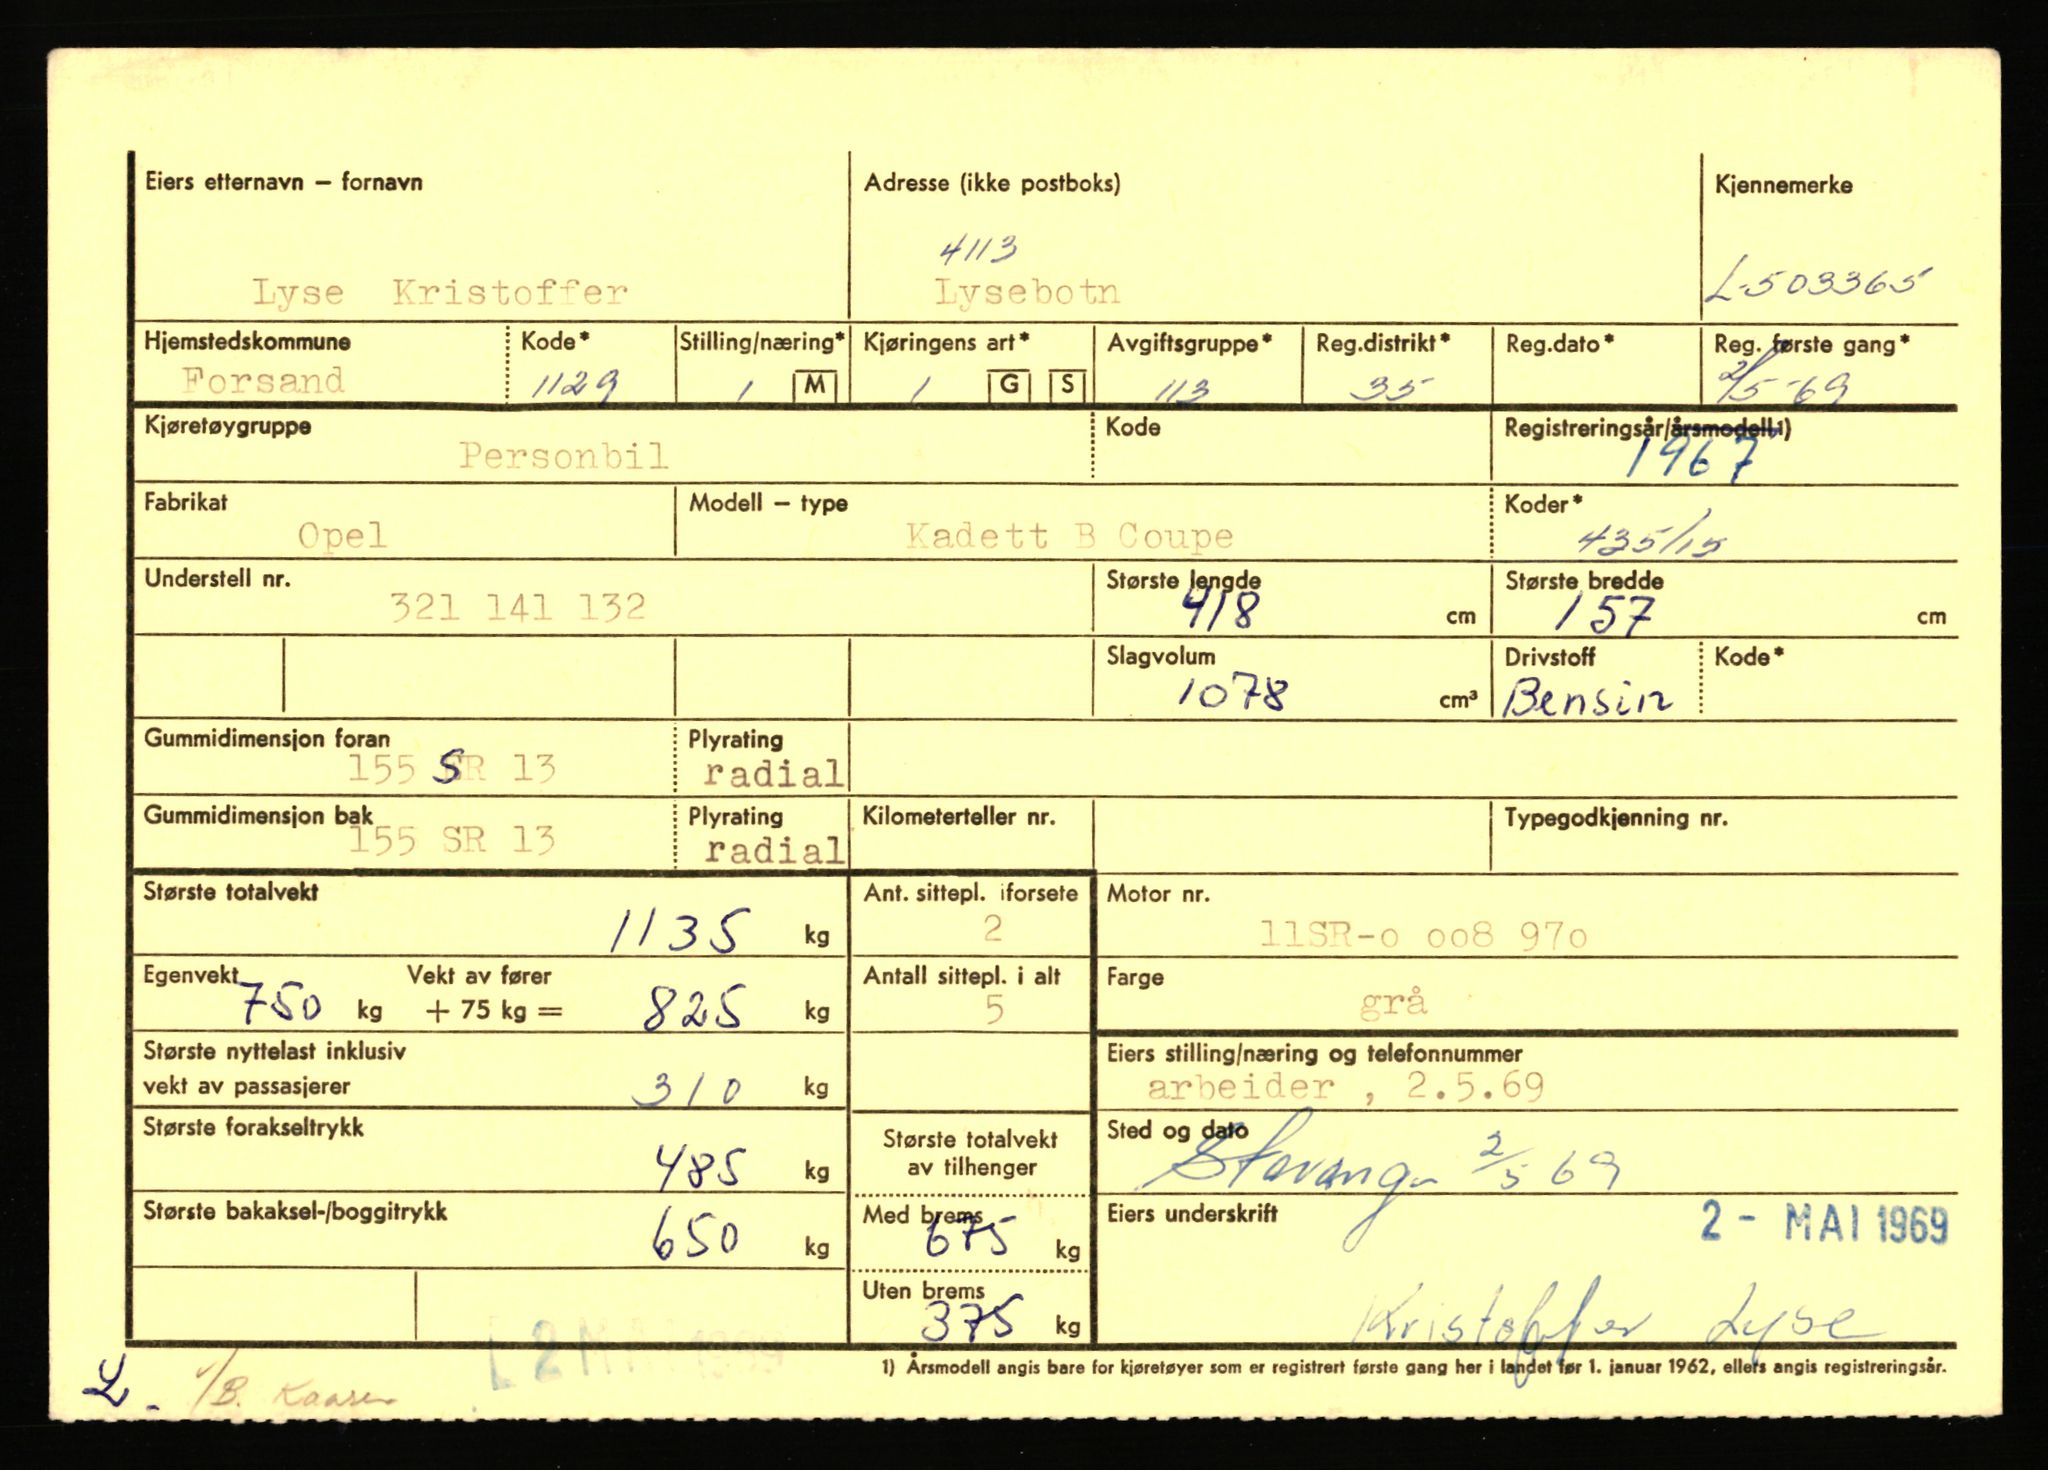 Eiers etternavn – fornavn Adresse (ikke postboks) Kjennemerke
4113
Lyse Kristoffer Lysebotn L-503365
Hjemstedskommune Kode* Stilling/næring* Kjøringens art* Avgiftsgruppe* Reg.distrikt* Reg.dato* Reg. første gang*
Forsand 1129 1 M 1 G S 113 35 2/5-69
Kjøretøygruppe Kode Registreringsår/årsmodell1)
Personbil 1967
Fabrikat Modell – type Koder*
Opel Kadett B Coupe 435/15
Understell nr. Største lengde Største bredde
321 141 132 418 cm 157 cm
Slagvolum Drivstoff Kode*
1078 cm³ Bensin
Gummidimensjon foran Plyrating
155 SR 13 radial
Gummidimensjon bak Plyrating Kilometerteller nr. Typegodkjenning nr.
155 SR 13 radial
Største totalvekt Ant. sittepl. iforsete Motor nr.
1135 kg 2 11SR-o oo8 97o
Egenvekt Vekt av fører Antall sittepl. i alt Farge
750 kg + 75 kg = 825 kg 5 grå
Største nyttelast inklusiv Eiers stilling/næring og telefonnummer
vekt av passasjerer 310 kg arbeider , 2.5.69
Største forakseltrykk Største totalvekt Sted og dato
485 kg av tilhenger Stavanger 2/5 69
Største bakaksel-/boggitrykk Med brems Eiers underskrift 2 - MAI 1969
650 kg 675 kg
Uten brems
375 kg Kristoffer Lyse
L 2 MAI 1969
1) Årsmodell angis bare for kjøretøyer som er registrert første gang her i landet før 1. januar 1962, ellers angis registreringsår.
L. 1/B. Kaasen